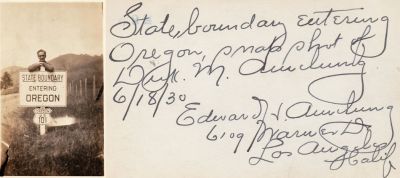 STATE BOUNDARY
ENTERING
OREGON
State boundary entering
Oregon, snap shot of
M.
6/18/30
Edward
6109 Warner Dr
Los Angeles
Calif